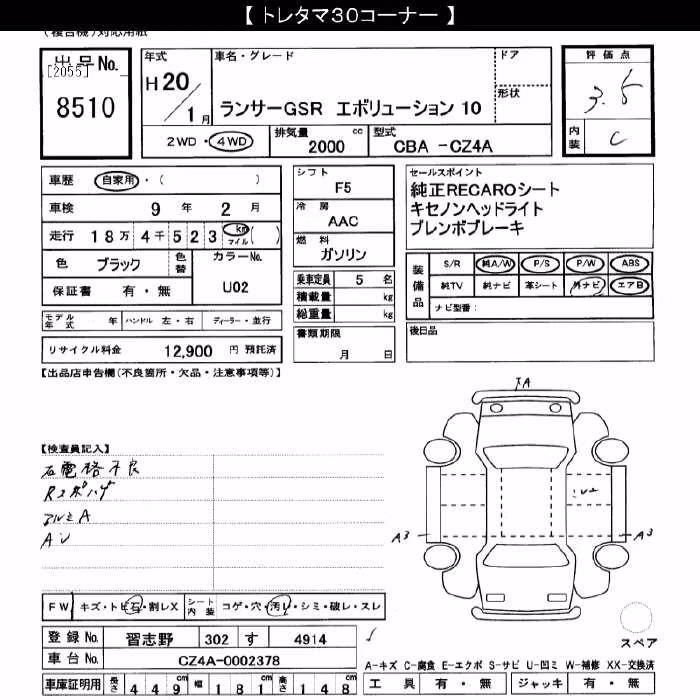 【 トレタマ30コーナー 】
(複合機)対応用紙
出品No.
[2055]
8510
年式
H 20 / 1 月
車名・グレード
ランサーGSR エボリューション 10
ドア
形状
評価点
3.5
内装
C
2WD・4WD
排気量
2000 cc
型式
CBA -CZ4A
車歴 自家用・( )
車検 9 年 2 月
走行 18万 4千 523 km マイル ( )
色 ブラック
色替
カラーNo.
U02
保証書 有・無
モデル年式 年 ハンドル 左・右 ディーラー・並行
リサイクル料金 12,900 円 預託済
シフト
F5
冷房
AAC
燃料
ガソリン
乗車定員 5 名
積載量 kg
総重量 kg
書類期限
月 日
セールスポイント
純正RECAROシート
キセノンヘッドライト
ブレンボブレーキ
装備品
S/R 純A/W P/S P/W ABS
純TV 純ナビ 革シート 外ナビ エアB
ナビ型番:
後日品
【出品店申告欄(不良箇所・欠品・注意事項等)】
【検査員記入】
アルミA
AU
A
U2
A3
A3
FW キズ・トビ石・割レX
シート内装 コゲ・穴・汚レ・シミ・破レ・スレ
登録No. 習志野 302 す 4914
車台No. CZ4A-0002378
車庫証明用 長さ 449 cm 幅 181 cm 高さ 148 cm
スペア
A-キズ C-腐食 E-エクボ S-サビ U-凹ミ W-補修 XX-交換済
工具 有・無 ジャッキ 有・無